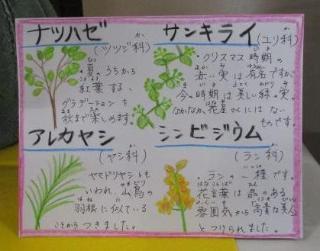 ナツハゼ
(ツツジ科)
・夏のうちから
紅葉する、
グラデーションを
秋まで楽しめます。
サンキライ(ユリ科)
・クリスマス時期の
赤い実は有名ですが、
今時期は美しい緑の実。
なかなか、花屋さんにはない
ものです。
アレカヤシ
(ヤシ科)
ヤマドリヤシとも
いわれ、山鳥の
羽根に似ている
ことからつきました。
シンビジウム
(ラン科)
・ランの一種です。
花言葉は品のある
雰囲気から"高貴な美人"
とつけられました。